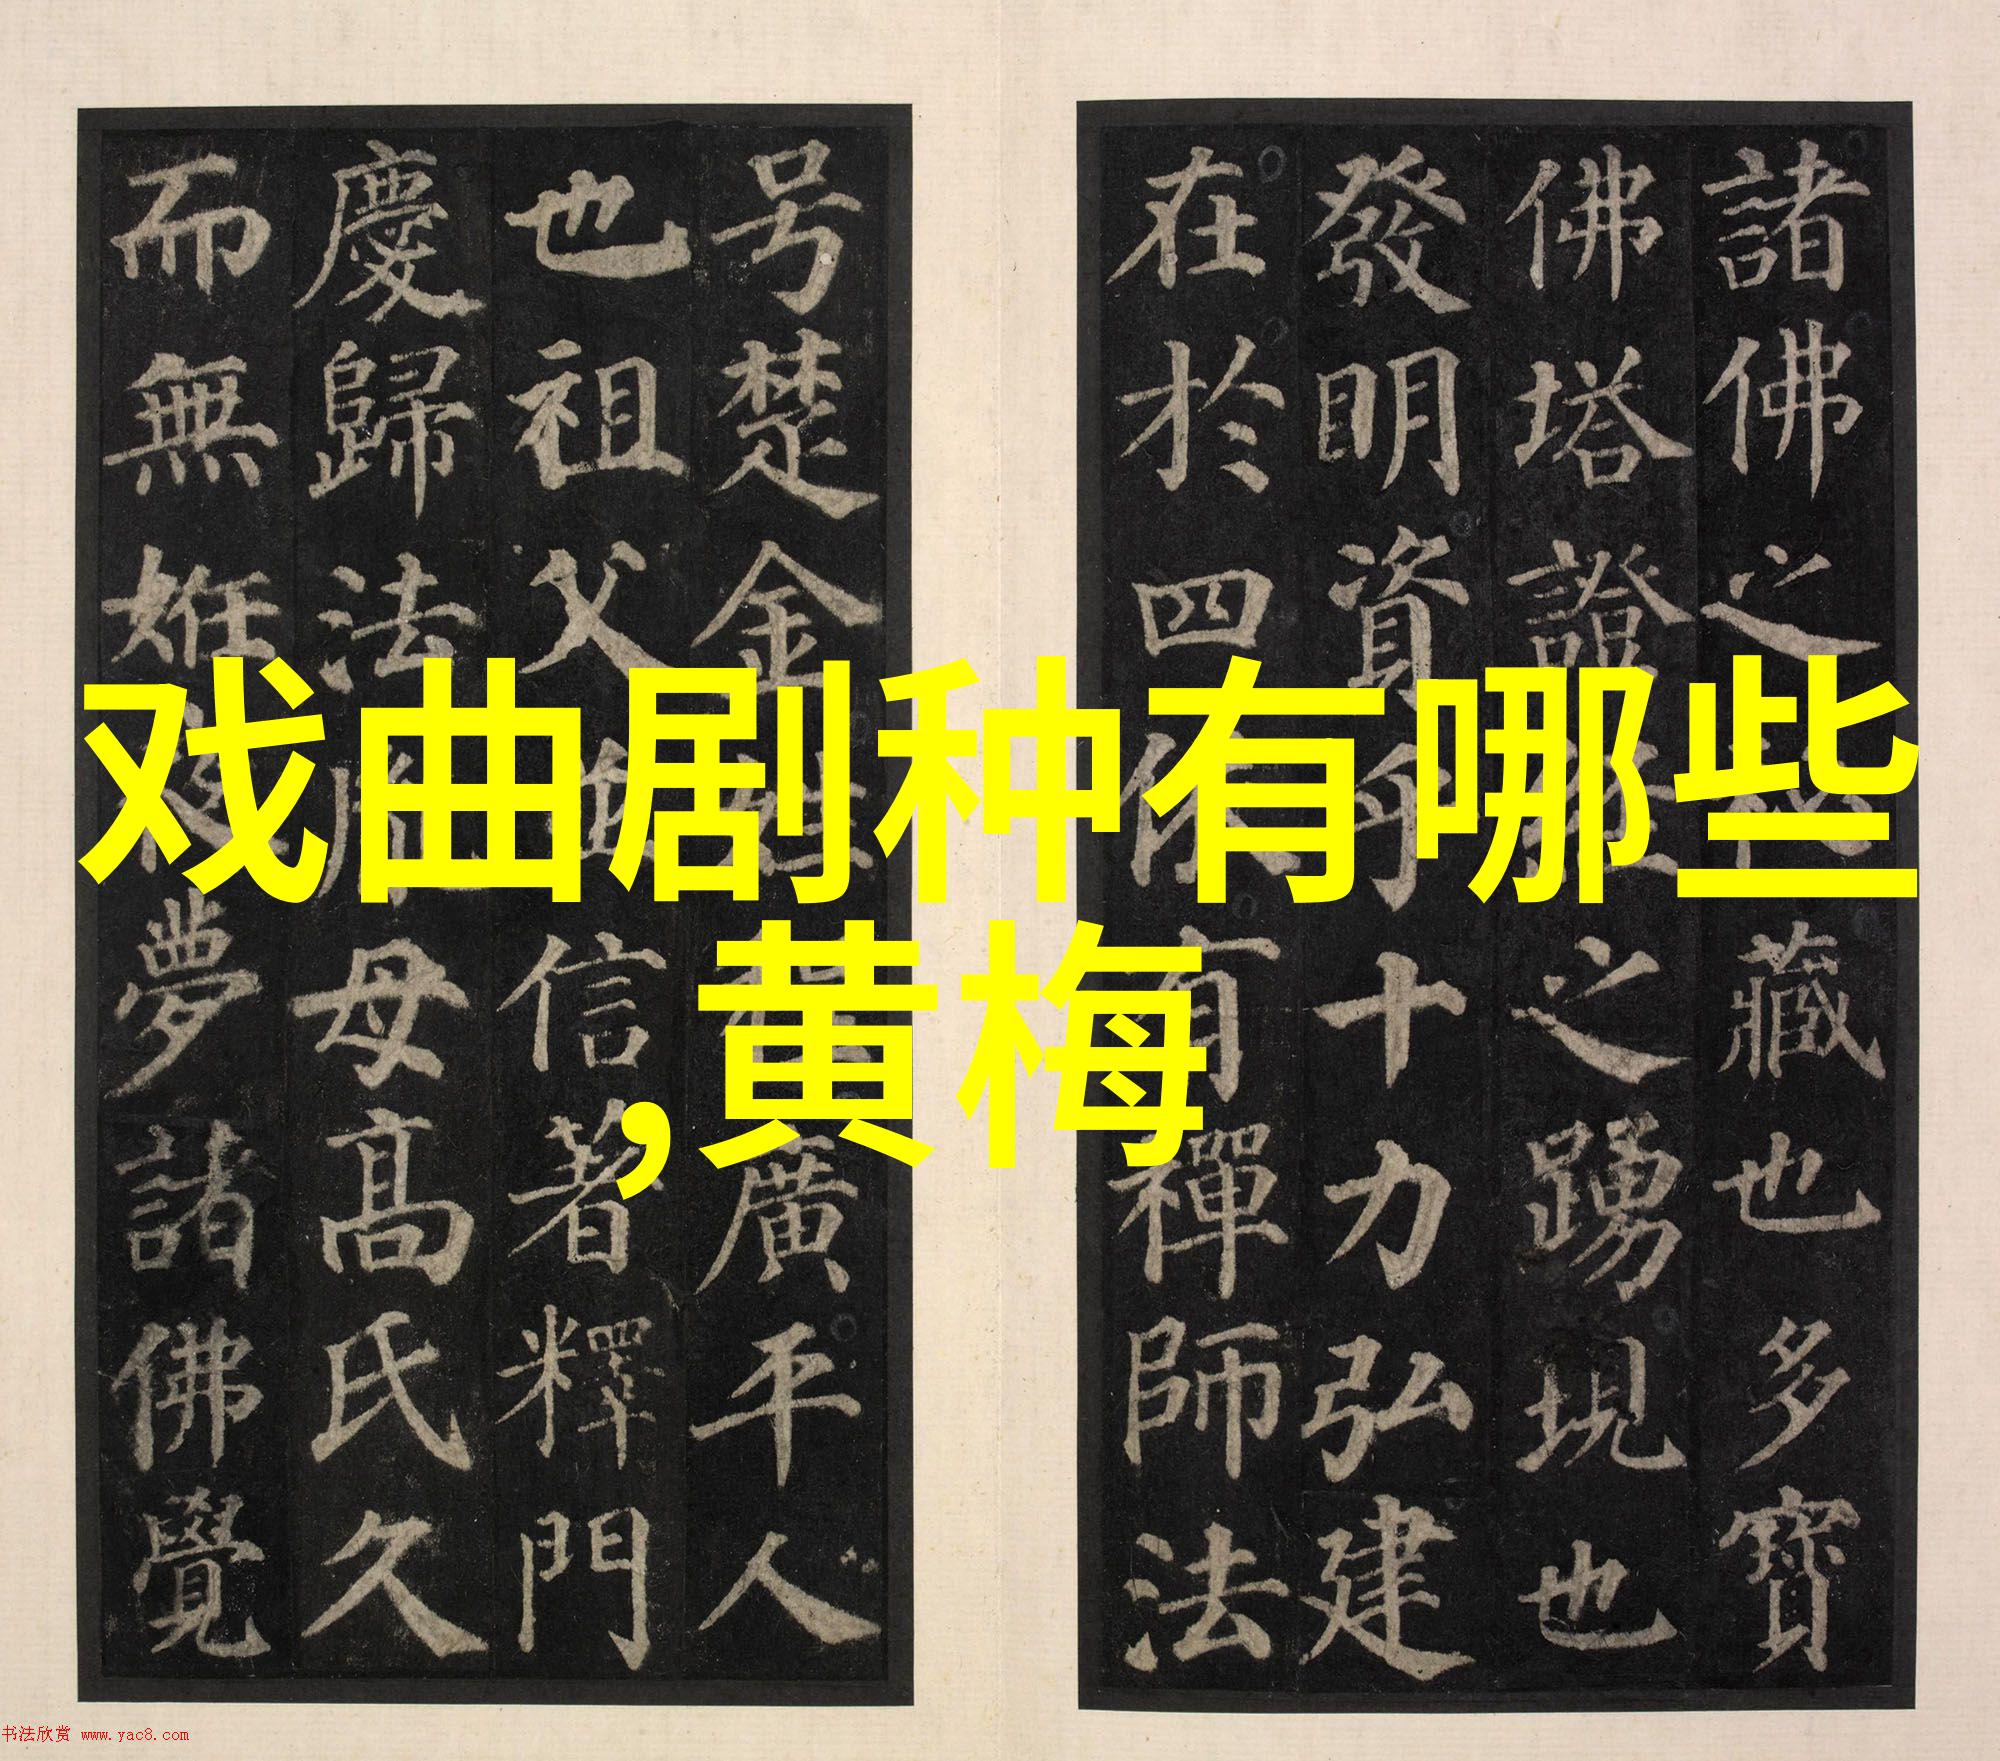 戏曲剧种有哪些
,黄梅
諸佛之秘藏也多寶
佛塔證經之踴現也
發明資乎十力弘建
在於四依有禪師法
号楚金姓程廣平人
也祖父並信著釋門
慶歸法胤母髙氏久
而無姙夜夢諸佛覺
书法欣赏 www.yac8.com